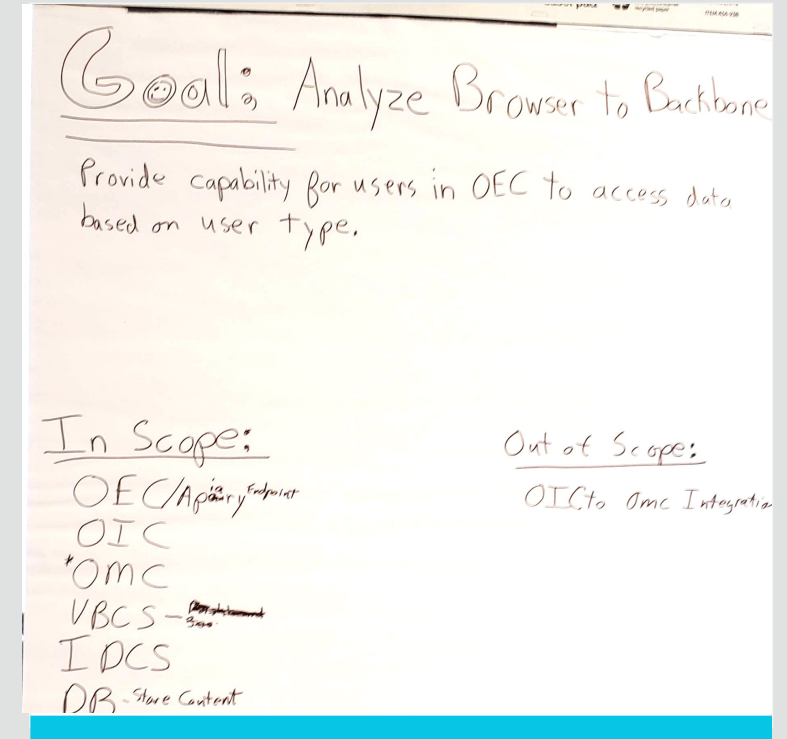 Goal: Analyze Browser to Backbone
Provide capability for users in OEC to access data
based on user type.
In Scope:
OEC/Apiary Endpoint
OIC
*OMC
VBCS -
IDCS
DB - Store Content
Out of Scope:
OIC to Omc Integration